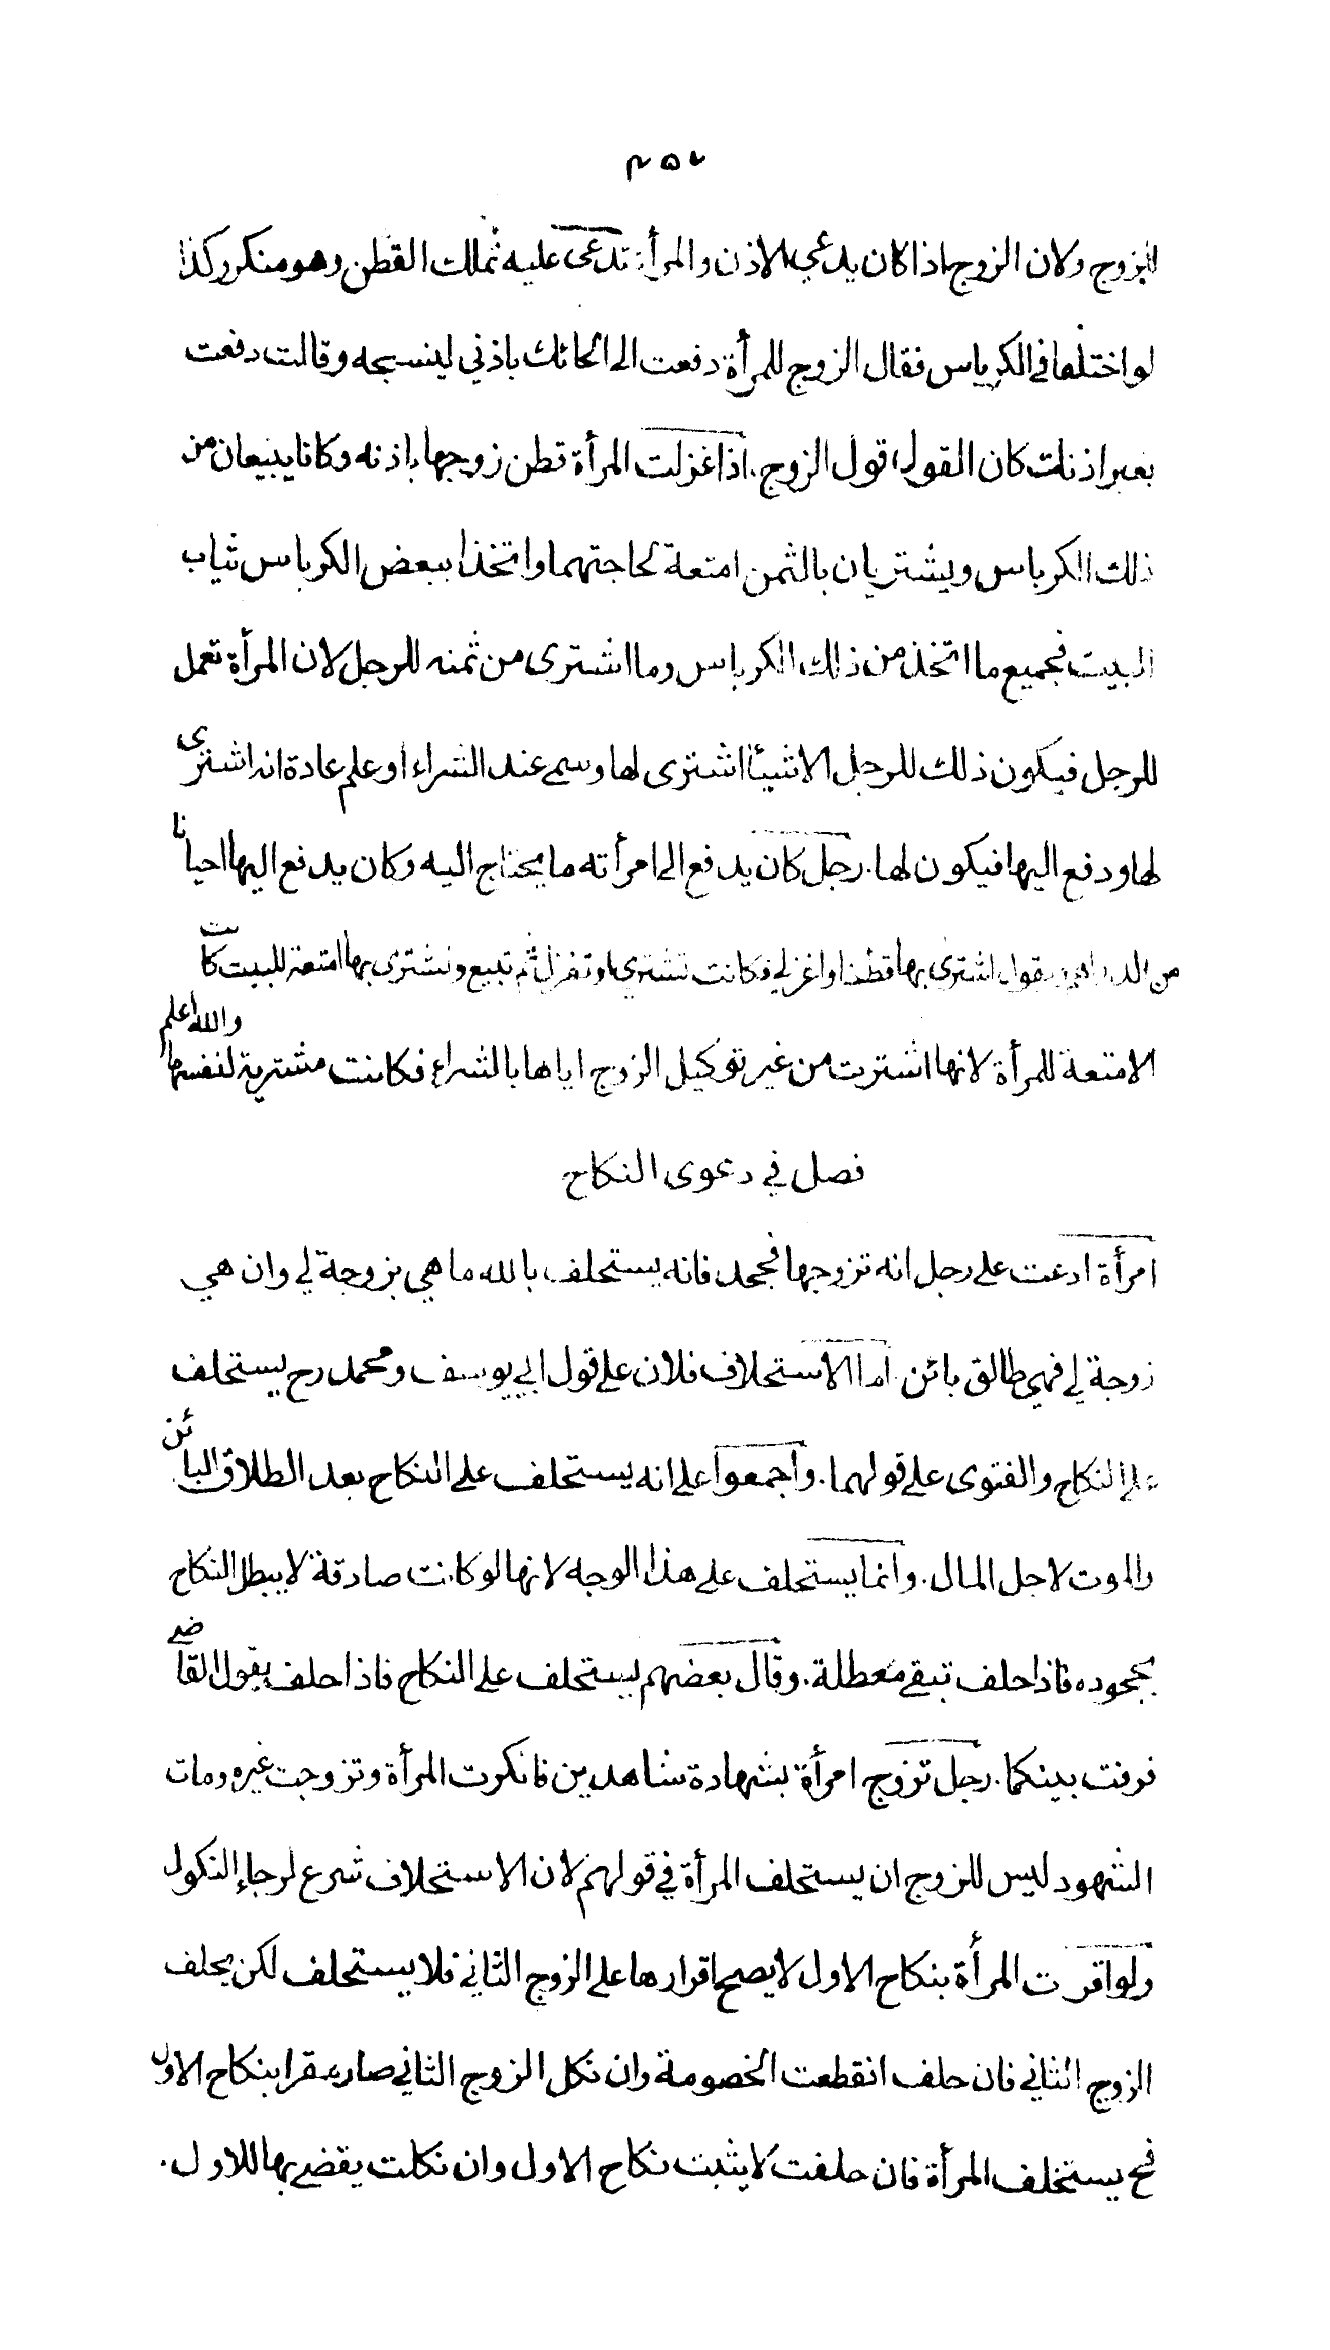 ٢٥٢
للزوج ولان الزوج اذا كان يدعي الاذن والمرأة تدعى عليه تملك القطن وهو منكر وكذا
لو اختلفا فى الكرباس فقال الزوج للمرأة دفعت الى الحائك باذني لينسجه وقالت دفعت
بغير اذنك كان القول قول الزوج . اذا غزلت المرأة قطن زوجها باذنه وكانا يبيعان من
ذلك الكرباس ويشتريان بالثمن امتعة لحاجتهما واتخذا ببعض الكرباس ثياب
البيت فجميع ما اتخذ من ذلك الكرباس وما اشترى من ثمنه للرجل لان المرأة تعمل
للرجل فيكون ذلك للرجل الا شيئا اشترى لها وسمى عند الشراء او علم عادة انه اشترى
لها ودفع اليها فيكون لها . رجل كان يدفع الى امرأته ما يحتاج اليه وكان يدفع اليها احيانا
من الدراهم ويقول اشترى بها قطنا واغزلي فكانت تشتري وتغزل ثم تبيع وتشترى بها امتعة للبيت كانت
الامتعة للمرأة لانها اشترت من غير توكيل الزوج اياها بالشراء فكانت مشترية لنفسها والله اعلم
فصل في دعوى النكاح
امرأة ادعت على رجل انه تزوجها فجحد فانه يستحلف بالله ما هي بزوجة لي وان هي
زوجة لي فهي طالق بائن . اما الاستحلاف فلان على قول ابي يوسف ومحمد رح يستحلف
على النكاح والفتوى على قولهما . واجمعوا على انه يستحلف على النكاح بعد الطلاق البائن
والموت لاجل المال . وانما يستحلف على هذا الوجه لانها لو كانت صادقة لا يبطل النكاح
بجحوده فاذا حلف تبقى معطلة . وقال بعضهم يستحلف على النكاح فاذا حلف يقول القاضي
فرقت بينكما . رجل تزوج امرأة بشهادة شاهدين فانكرت المرأة وتزوجت غيره ومات
الشهود ليس للزوج ان يستحلف المرأة في قولهم لان الاستحلاف شرع لرجاء النكول
ولو اقرت المرأة بنكاح الاول لا يصح اقرارها على الزوج الثاني فلا يستحلف لكن يحلف
الزوج الثاني فان حلف انقطعت الخصومة وان نكل الزوج الثاني صار مقرا بنكاح الاول
فح يستحلف المرأة فان حلفت لا يثبت نكاح الاول وان نكلت يقضى بها للاول .